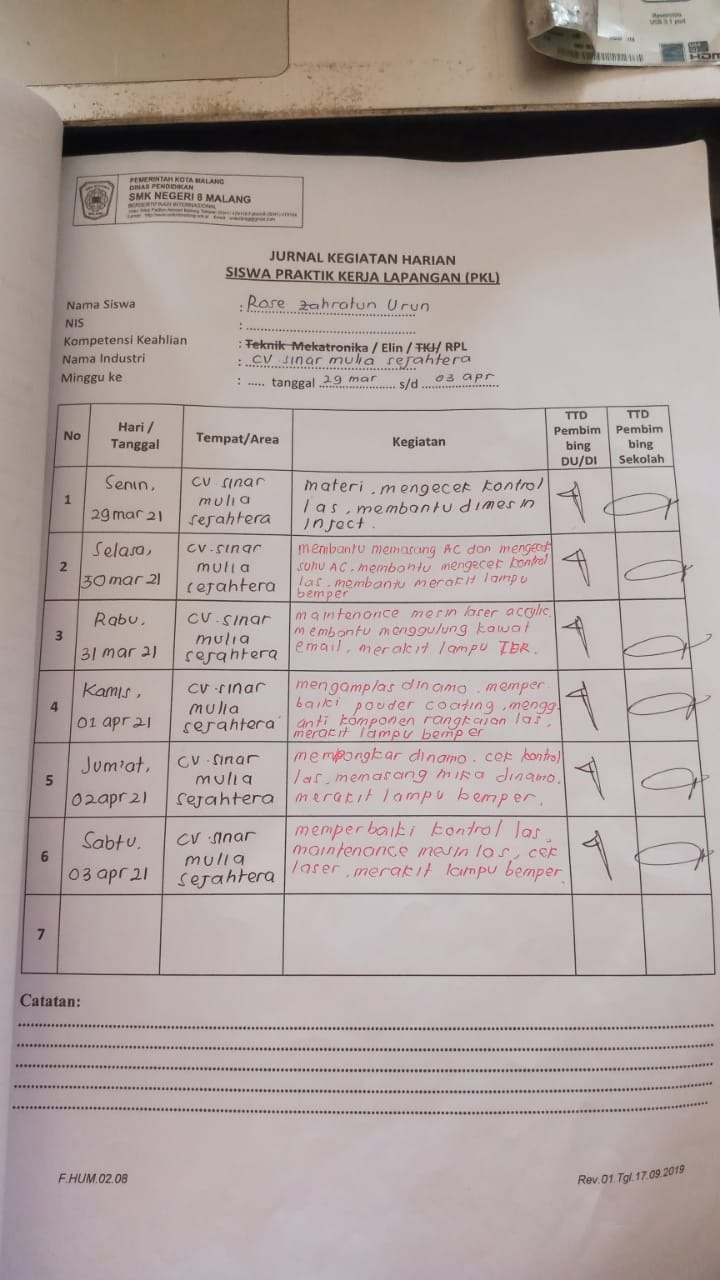 Reversible
USB 3.1 port
HDMI
PEMERINTAH KOTA MALANG
DINAS PENDIDIKAN
SMK NEGERI 8 MALANG
BERSERTIFIKASI INTERNASIONAL
JURNAL KEGIATAN HARIAN
SISWA PRAKTIK KERJA LAPANGAN (PKL)
Nama Siswa : Rose Zahratun Urun
NIS :
Kompetensi Keahlian : Teknik Mekatronika / Elin / TKJ/ RPL
Nama Industri : CV sinar mulia sejahtera
Minggu ke : ..... tanggal 29 mar s/d 03 apr
No Hari / Tanggal Tempat/Area Kegiatan TTD Pembim bing DU/DI TTD Pembim bing Sekolah
1 Senin, 29 mar 21 CV sinar mulia sejahtera materi, mengecek kontrol las, membantu dimesin inject.
2 Selasa, 30 mar 21 CV. sinar mulia sejahtera membantu memasang AC dan mengecek suhu AC, membantu mengecek kontrol las, membantu merakit lampu bemper
3 Rabu, 31 mar 21 CV. sinar mulia sejahtera maintenance mesin laser acrylic, membantu menggulung kawat email, merakit lampu IER.
4 Kamis, 01 apr 21 CV. sinar mulia sejahtera mengamplas dinamo, memper baiki pouder coating, mengg anti komponen rangkaian las, merakit lampu bemper
5 Jum'at, 02 apr 21 CV. sinar mulia sejahtera membongkar dinamo, cek kontrol las, memasang mika dinamo, merakit lampu bemper.
6 Sabtu, 03 apr 21 CV. sinar mulia sejahtera memperbaiki kontrol las, maintenance mesin las, cek laser, merakit lampu bemper.
7
Catatan:
F.HUM.02.08
Rev.01.Tgl.17.09.2019